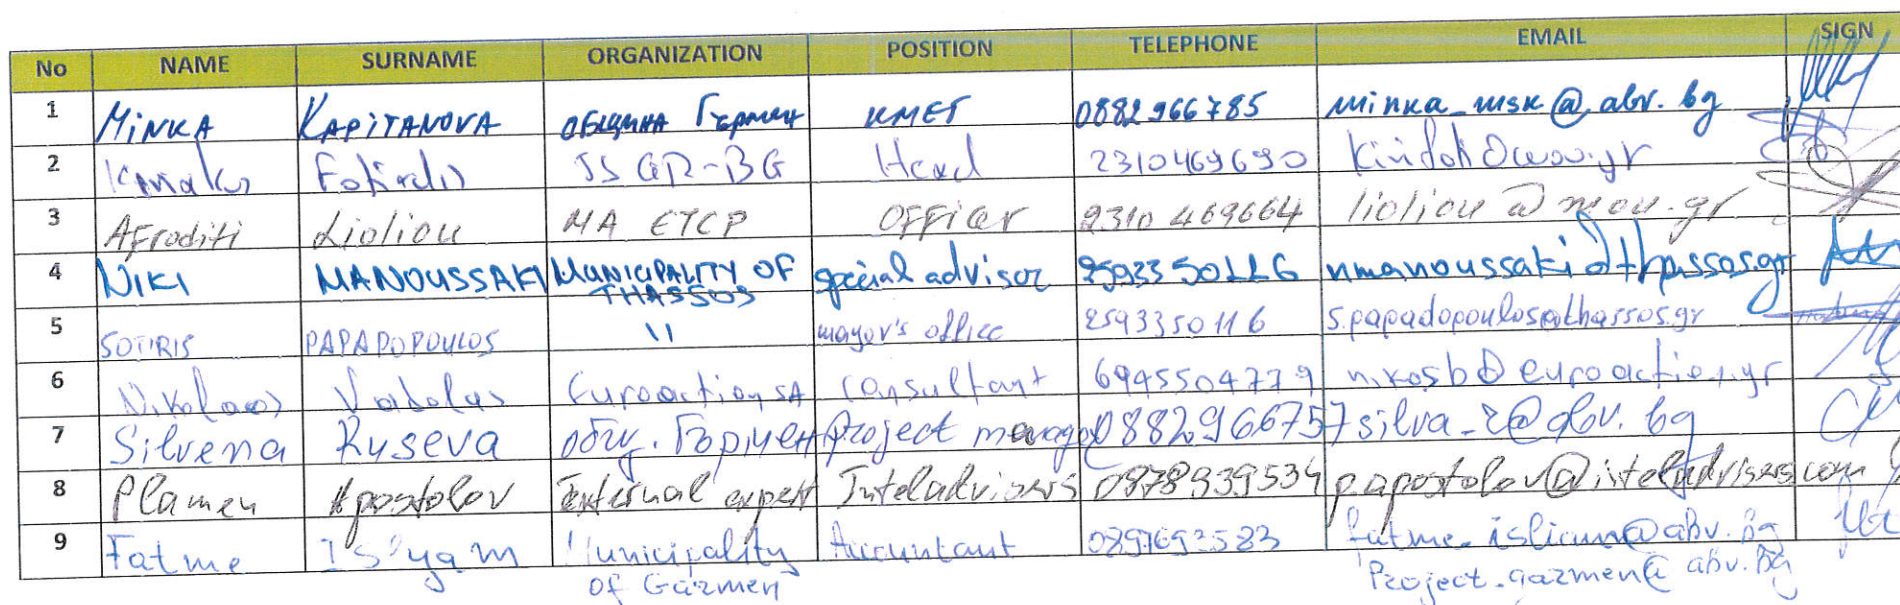 No NAME SURNAME ORGANIZATION POSITION TELEPHONE EMAIL SIGN
1 MINKA KAPITANOVA ОБЩИНА Гърмен КМЕТ 0882966785 minka_msk@abv.bg
2 Fotiadis JS GR-BG Head 2310469690
3 Afroditi Lioliou MA ETCP OFFicer 2310 469664 lioliou@mou.gr
4 NIKI MANOUSSAKI MUNICIPALITY OF THASSOS special advisor 2593350116 nmanoussaki@thassos.gr
5 SOTIRIS PAPADOPOULOS 11 mayor's office 2593350116 s.papadopoulos@thassos.gr
6 Nikolaos Euroaction SA consultant 6945504779 nikosb@euroaction.gr
7 Silvena Ruseva общ. Гърмен Project manager 0882966757 silva_r@abv.bg
8 Plamen Apostolov External expert Inteladvisers 0878939534 papostolov@inteladvisers.com
9 Fatme Municipality Accountant
of Garmen Project.garmen@abv.bg